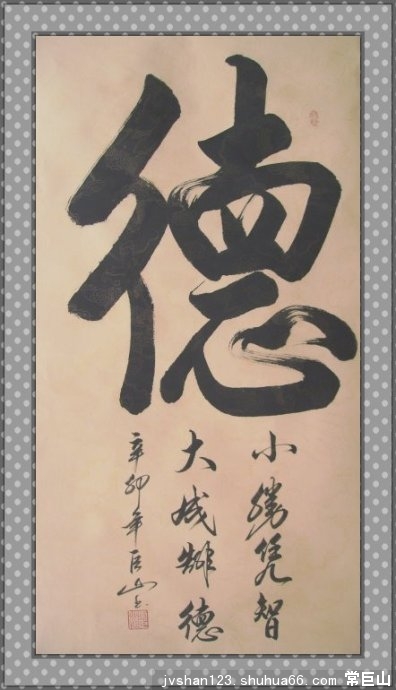 德
小勝凭智
大成靠德
辛卯年巨山书
jvshan123 shuhua66 com 常巨山